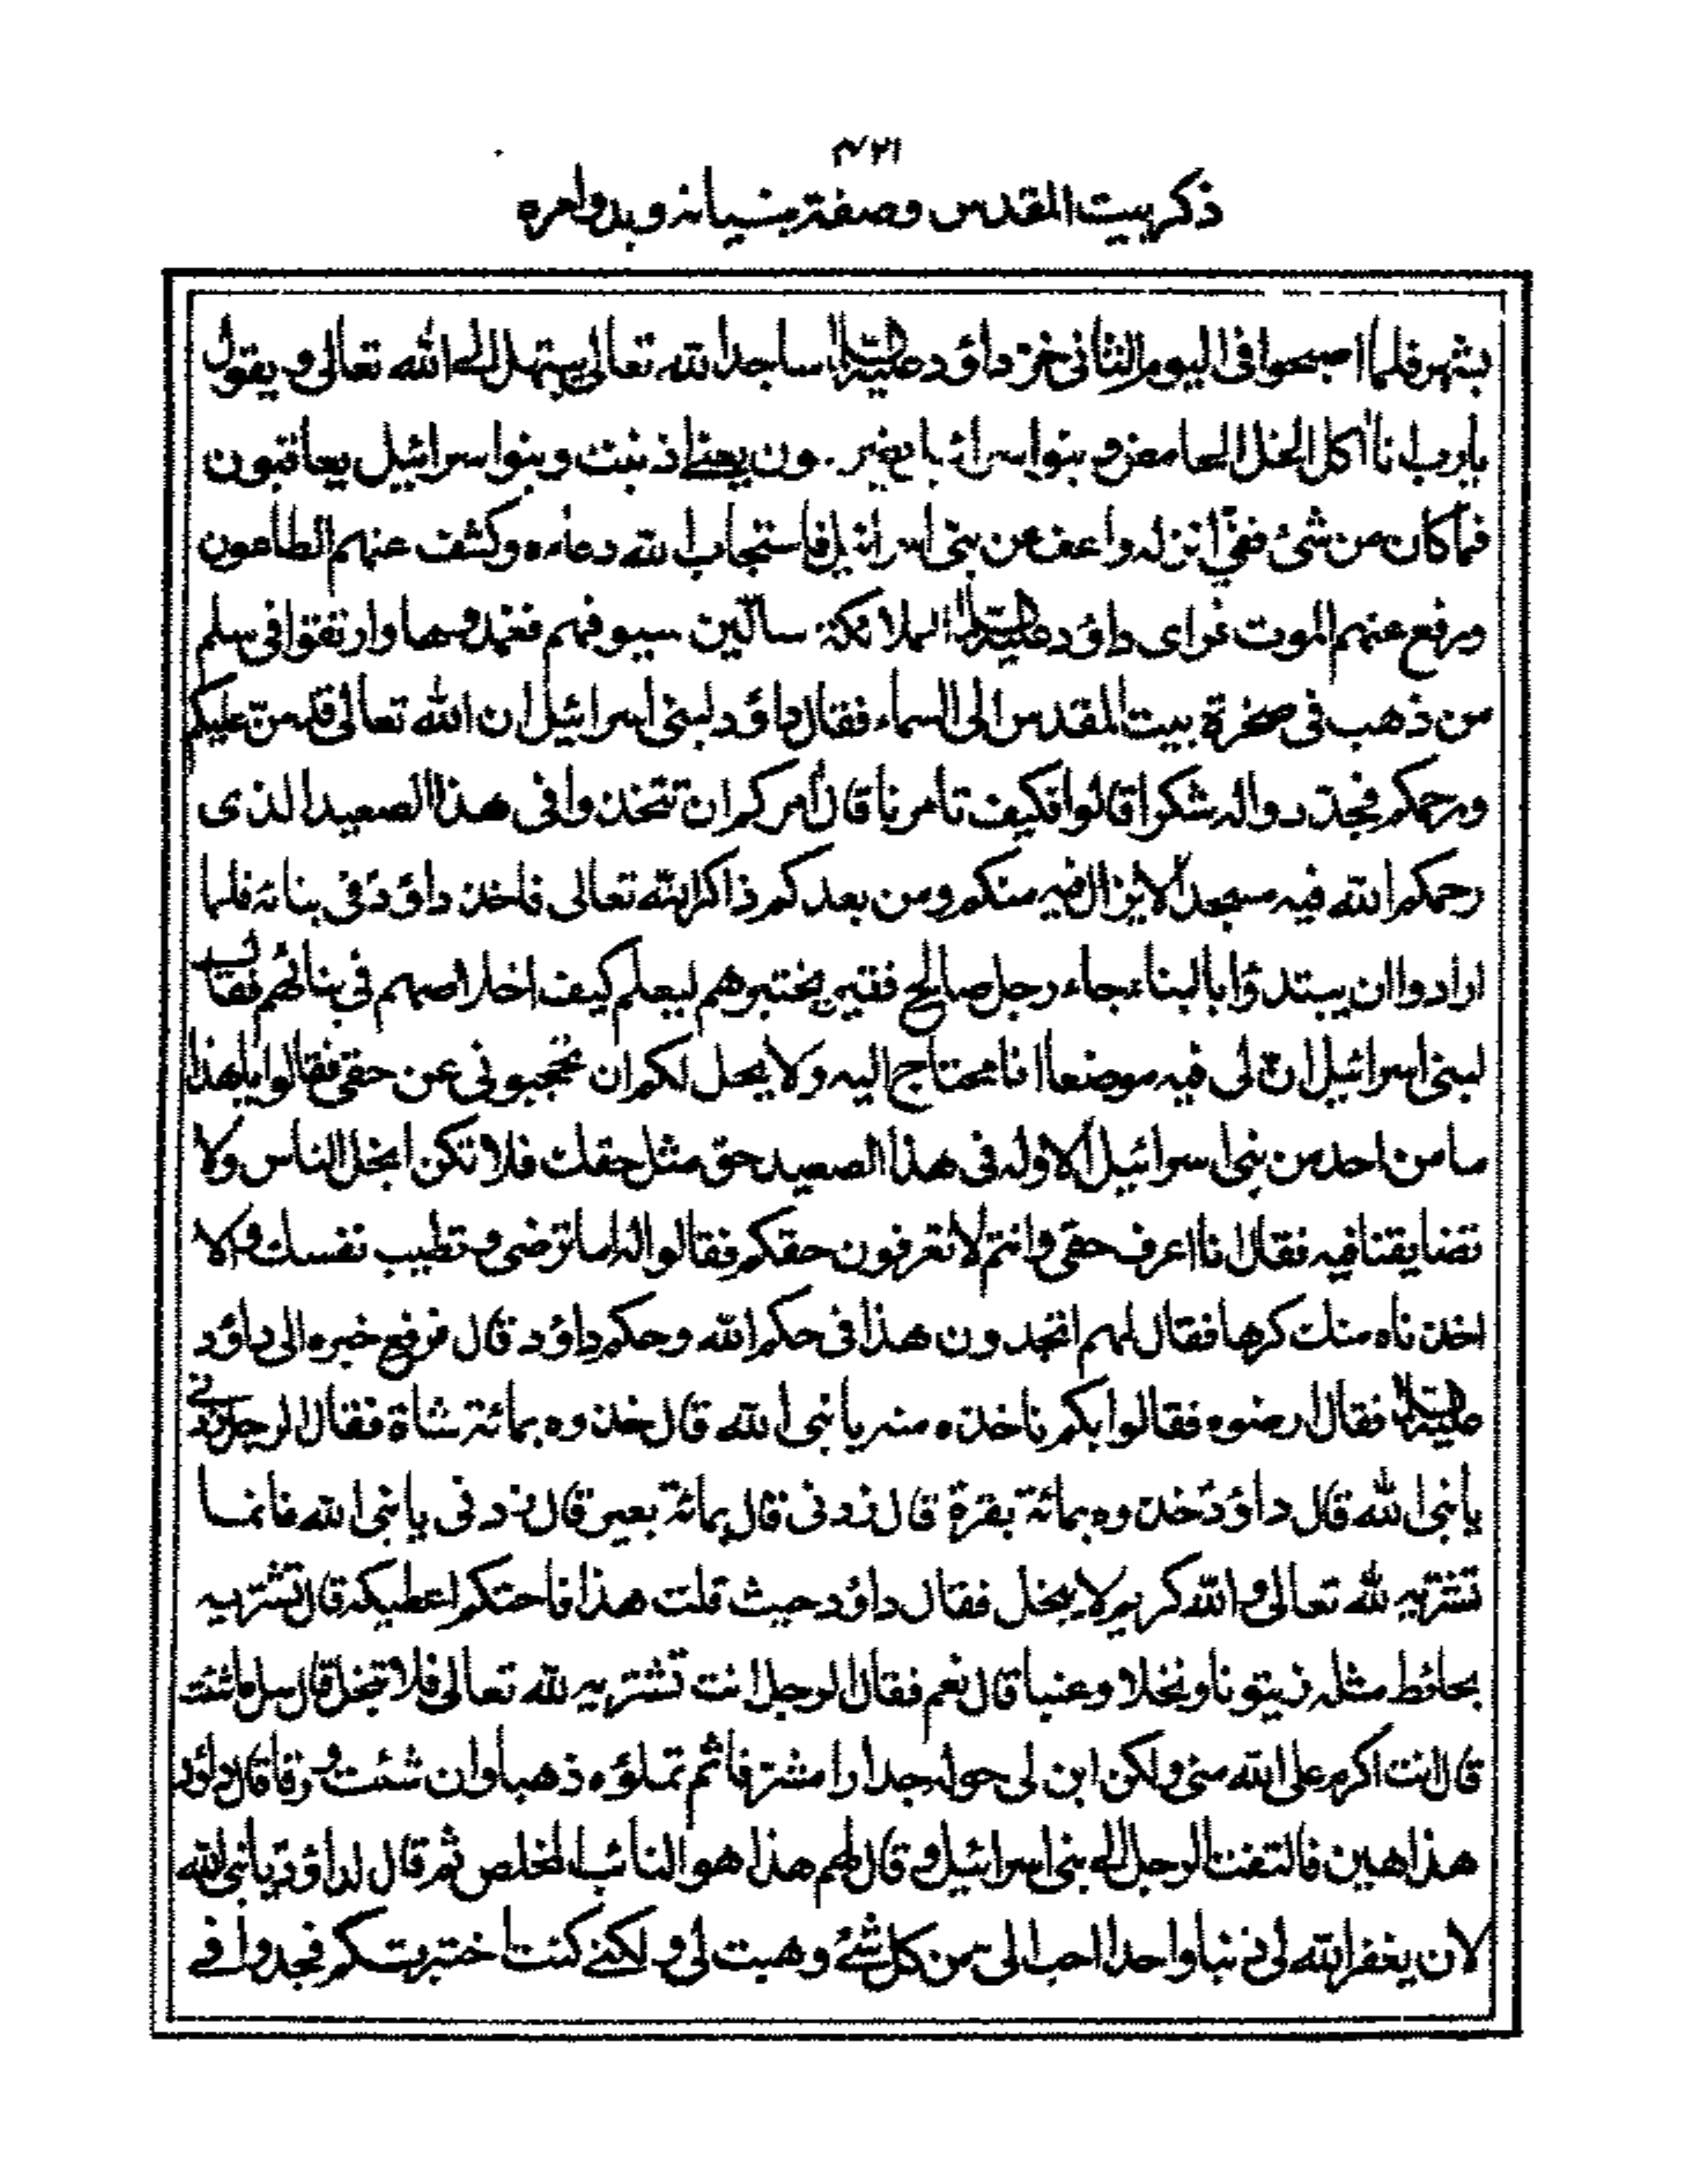 ۴۲۱
ذكر بيت المقدس وصفة بنيانه وبدو امره
بشهر فلما اصبحوا فى اليوم الثانى خر داؤد عليه السلام ساجدا لله تعالى يبتهل الى الله تعالى و يقول
يارب انا اكل الخل الحامض و بنوا يضرسون يعنى اذنبت وبنوا اسرائيل يعاقبون
فما كان من شئ ففىّ انزله واعف عن بنى اسرائيل فاستجاب الله دعاءه وكشف عنهم الطاعون
ورفع عنهم الموت فراى داؤد عليه السلام الملائكة سالّين سيوفهم فغمدوها وارتفقوا فى سلم
من ذهب فى صخرة بيت المقدس الى السماء فقال داؤد لبنى اسرائيل ان الله تعالى قد منّ عليكم
ورحمكم فجددوا له شكرا قالوا فكيف تامرنا قال أمركم ان تتخذوا فى هذا الصعيد الذى
رحمكم الله فيه مسجدا لايزال فيه منكم ومن بعدكم ذاكر الله تعالى فاخذ داؤد فى بنائه فلما
ارادوا ان يبتدؤا بالبناء جاء رجل صالح فقير يختبرهم ليعلم كيف اخلاصهم فى بنائهم فقال
لبنى اسرائيل انّ لى فيه موضعا انا محتاج اليه ولا يحل لكم ان تحجبونى عن حقى فقالوا يا هذا
ما من احد من بنى اسرائيل الا وله فى هذا الصعيد حق مثل حقك فلا تكن ابخل الناس ولا
تضايقنا فيه فقال انا اعرف حقى وانتم لا تعرفون حقكم فقالوا له اما ترضى و تطيب نفسك و الا
اخذناه منك كرها فقال لهم اتجدون هذا فى حكم الله وحكم داؤد قال فرفع خبره الى داؤد
عليه السلام فقال ارضوه فقالوا بكم ناخذه منه يا نبى الله قال خذوه بمائة شاة فقال الرجل زدنى
يا نبى الله قال داؤد خذوه بمائة بقرة قال زدنى قال بمائة بعير قال زدنى يا نبى الله فانما
تشتريه لله تعالى والله كريم لا يبخل فقال داؤد حيث قلت هذا فاحتكم اعطيكه قال تشتريه
بحائط مثله زيتونا ونخلا وعنبا قال نعم فقال الرجل انت تشتريه لله تعالى فلا تبخل قال سل ماشئت
قال انت اكرم على الله منى ولكن ابن لى حوله جدارا مشرفا ثم تملؤه ذهبا وان شئت ورقا قال داؤد
هذا هين فالتفت الرجل الى بنى اسرائيل و قال لهم هذا هو التائب المخلص ثم قال لداؤد يا نبى الله
لان يغفر الله لى ذنبا واحدا احب الى من كل شئ وهبت لى و لكنى كنت اختبرتكم فجدوا فى